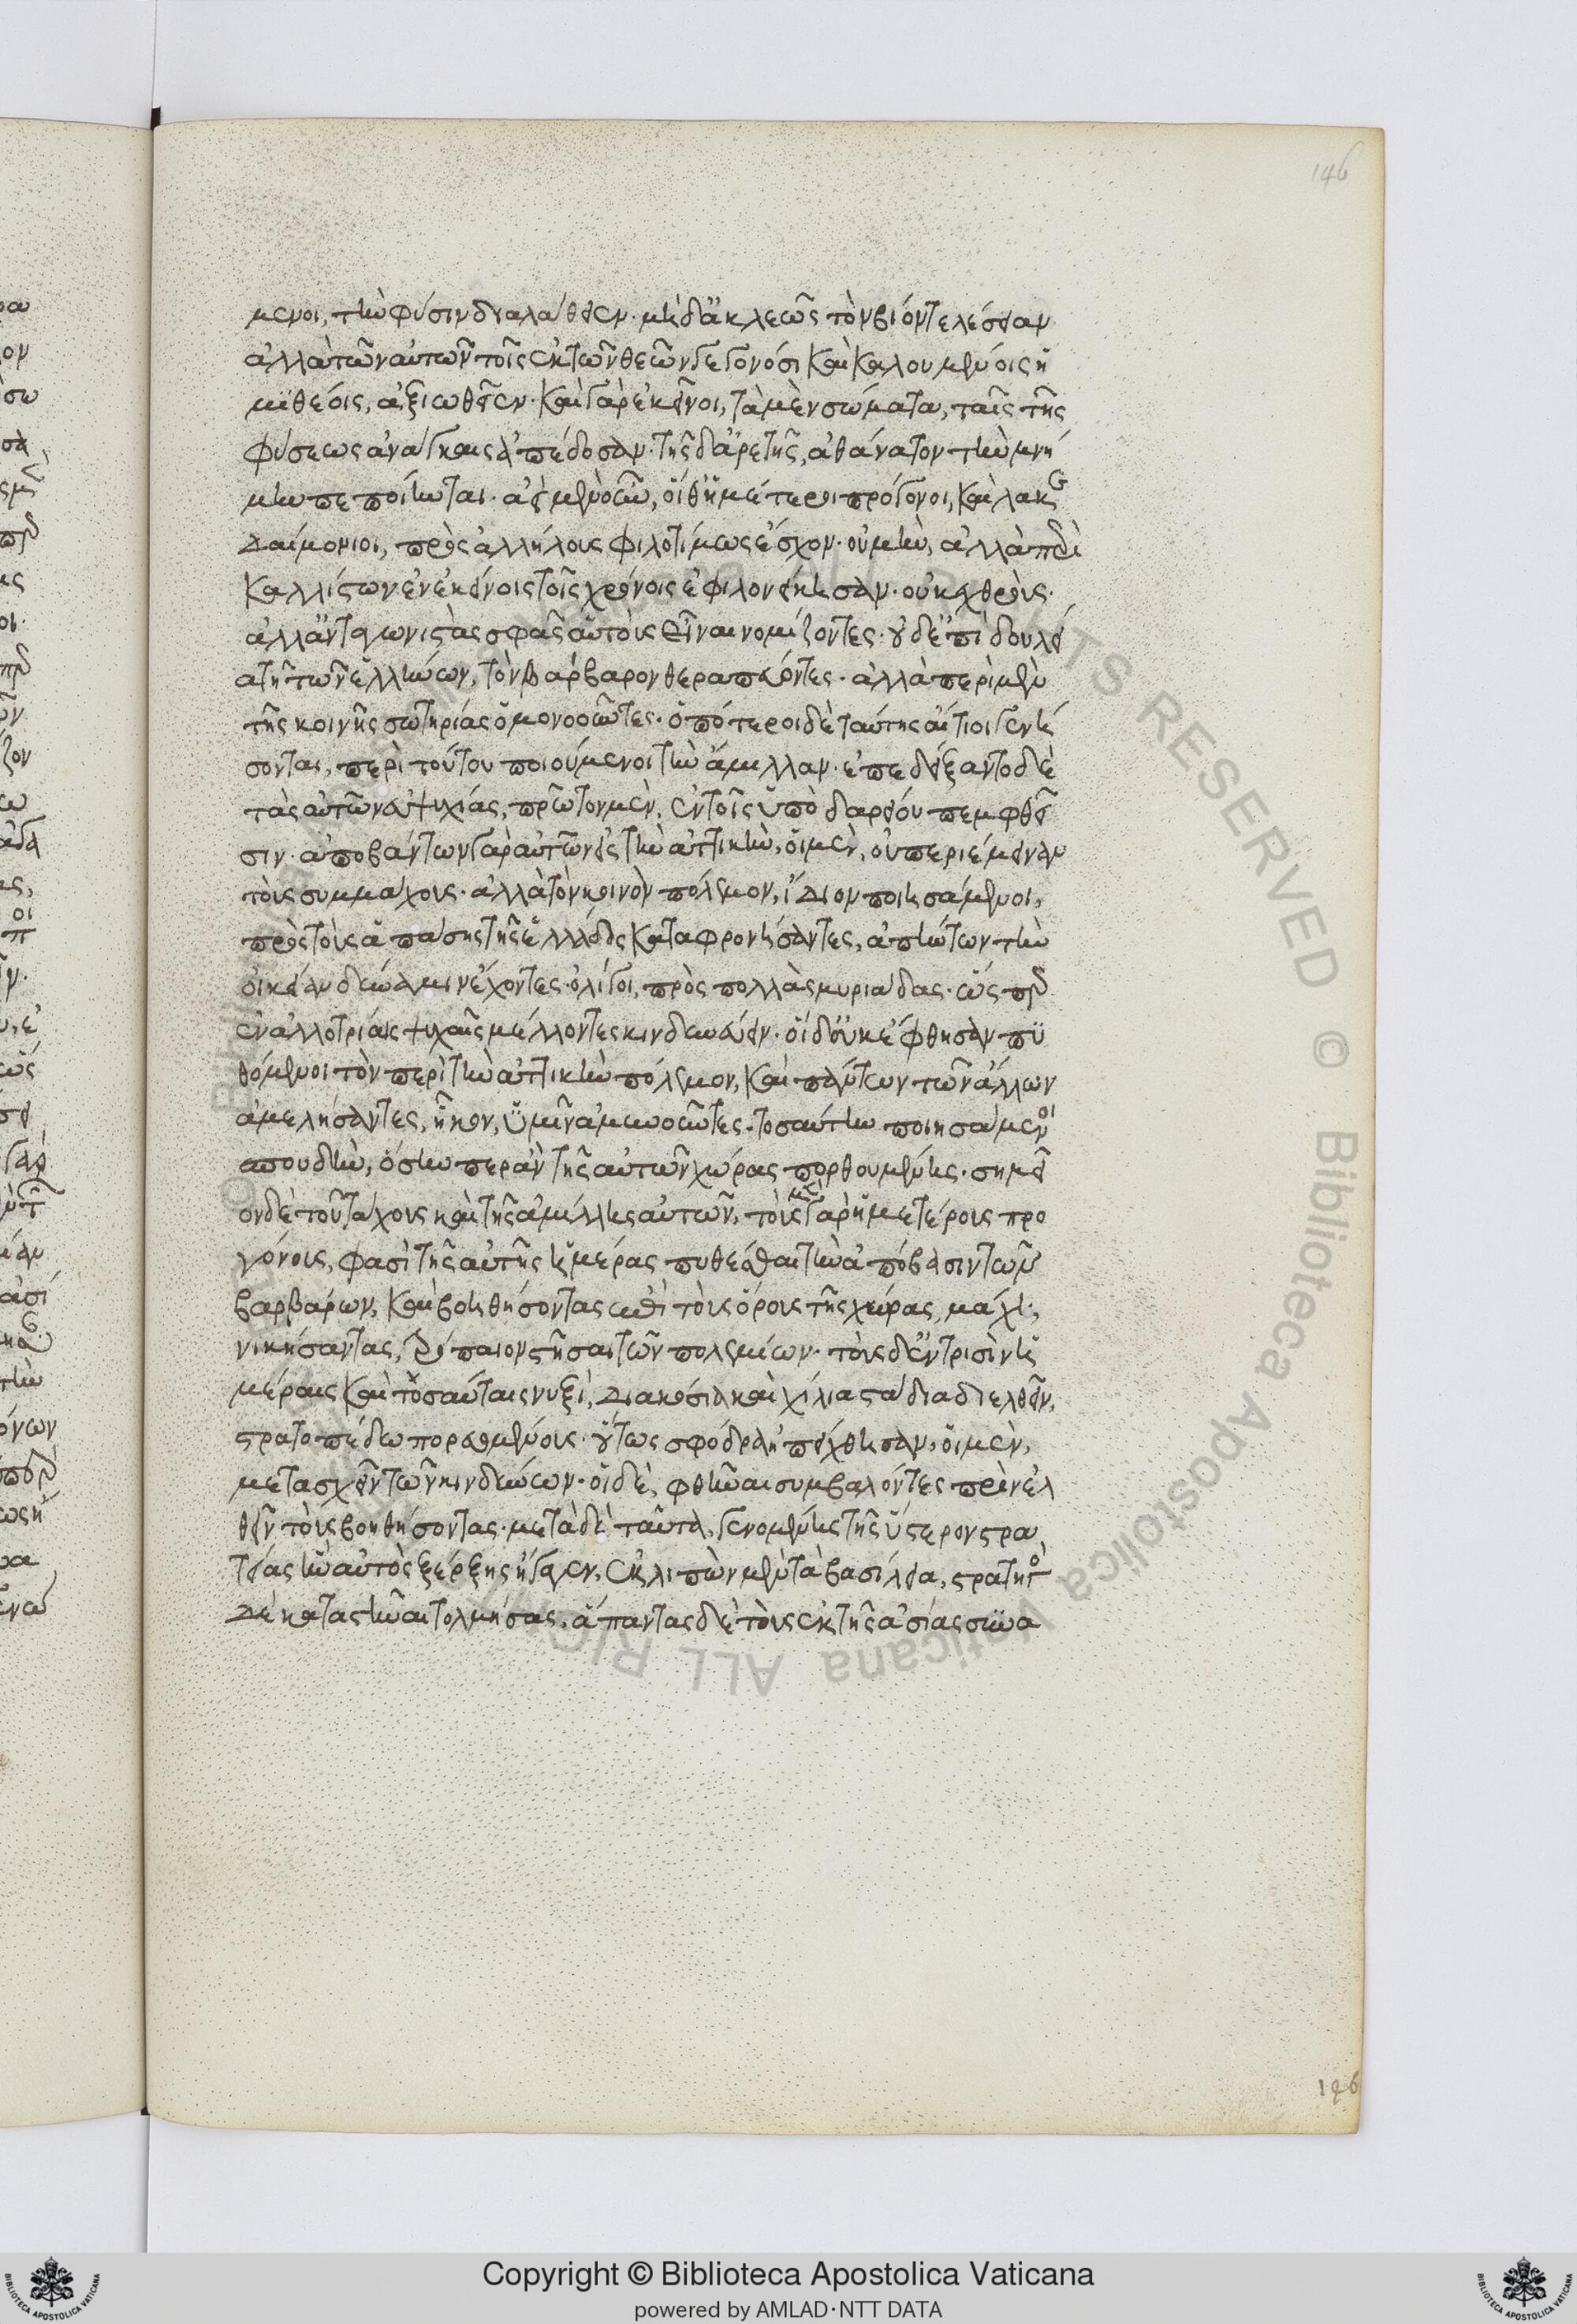 146
μενοι, τὴν φύσιν διαλάθοιεν· μὴ δ' ἀκλεῶς τὸν βίον τελέσειαν
ἀλλὰ τῶν αὐτῶν τοῖς ἐκ τῶν θεῶν γεγονόσι καὶ καλουμένοις ἡ
μιθέοις, ἀξιωθεῖεν· καὶ γὰρ ἐκεῖνοι, τὰ μὲν σώματα, ταῖς τῆς
φύσεως ἀνάγκαις ἀπέδοσαν· τῆς δ' ἀρετῆς, ἀθάνατον τὴν μνή
μην πεποίηνται· ἀεὶ μὲν οὖν, οἵ θ' ἡμέτεροι πρόγονοι, καὶ λακε
δαιμόνιοι, πρὸς ἀλλήλους φιλοτίμως ἔσχον· οὐ μὴν, ἀλλὰ περὶ
καλλίστων ἐν ἐκείνοις τοῖς χρόνοις ἐφιλονείκησαν· οὐκ ἐχθροὺς·
ἀλλ' ἀνταγωνιστὰς σφᾶς αὐτοὺς εἶναι νομίζοντες· οὐδ' ἐπὶ δουλεί
α τῆ τῶν ἑλλήνων, τὸν βάρβαρον θεραπεύοντες· ἀλλὰ περὶ μὲν
τῆς κοινῆς σωτηρίας ὁμονοοῦντες· ὁπότεροι δὲ ταύτης αἴτιοι γενή
σονται, περὶ τούτου ποιούμενοι τὴν ἅμιλλαν· ἐπεδείξαντο δὲ
τὰς αὐτῶν εὐψυχίας, πρῶτον μὲν, ἐν τοῖς ὑπὸ δαρείου πεμφθεῖ
σιν· ἀποβάντων γὰρ αὐτῶν εἰς τὴν ἀττικὴν, οἱ μὲν, οὐ περιέμειναν
τοὺς συμμάχους· ἀλλὰ τὸν κοινὸν πόλεμον, ἴδιον ποιησάμενοι,
πρὸς τοὺς ἁπάσης τῆς ἑλλάδος καταφρονήσαντες, ἀπήντων τὴν
οἰκείαν δύναμιν ἔχοντες· ὀλίγοι, πρὸς πολλὰς μυριάδας· ὥσπερ
ἐν ἀλλοτρίαις ψυχαῖς μέλλοντες κινδυνεύειν· οἱ δ' οὐκ ἔφθησαν πυ
θόμενοι τὸν περὶ τὴν ἀττικὴν πόλεμον, καὶ πάντων τῶν ἄλλων
ἀμελήσαντες, ἧκον, ὑμῖν ἀμυνοῦντες· τοσαύτην ποιησάμενοι
σπουδὴν, ὅσην περ ἂν τῆς αὐτῶν χώρας πορθουμένης· σημεῖ
ον δὲ τοῦ τάχους καὶ τῆς ἁμίλλης αὐτῶν, τοὺς μὲν γὰρ ἡμετέρους προ
γόνους, φασὶ τῆς αὐτῆς ἡμέρας πυθέσθαι τὴν ἀπόβασιν τῶν
βαρβάρων, καὶ βοηθήσοντας ἐπὶ τοὺς ὅρους τῆς χώρας, μάχῃ,
νικήσαντας, τρόπαιον στῆσαι τῶν πολεμίων· τοὺς δ' ἐν τρισὶν ἡ
μέραις καὶ τοσαύταις νυξὶ, διακόσια καὶ χίλια στάδια διελθεῖν,
στρατοπέδω πορευομένους· οὕτως σφόδρα ἠπείχθησαν, οἱ μὲν,
μετασχεῖν τῶν κινδύνων· οἱ δὲ, φθῆναι συμβαλόντες πρὶν ἐλ
θεῖν τοὺς βοηθήσοντας· μετὰ δὲ ταῦτα, γενομένης τῆς ὕστερον στρα
τείας ἣν αὐτὸς ξέρξης ἤγαγεν, ἐκλιπὼν μὲν τὰ βασίλεια, στρατηγὸς
δὲ καταστῆναι τολμήσας, ἅπαντας δὲ τοὺς ἐκ τῆς ἀσίας συνα
146
Copyright © Biblioteca Apostolica Vaticana
powered by AMLAD·NTT DATA